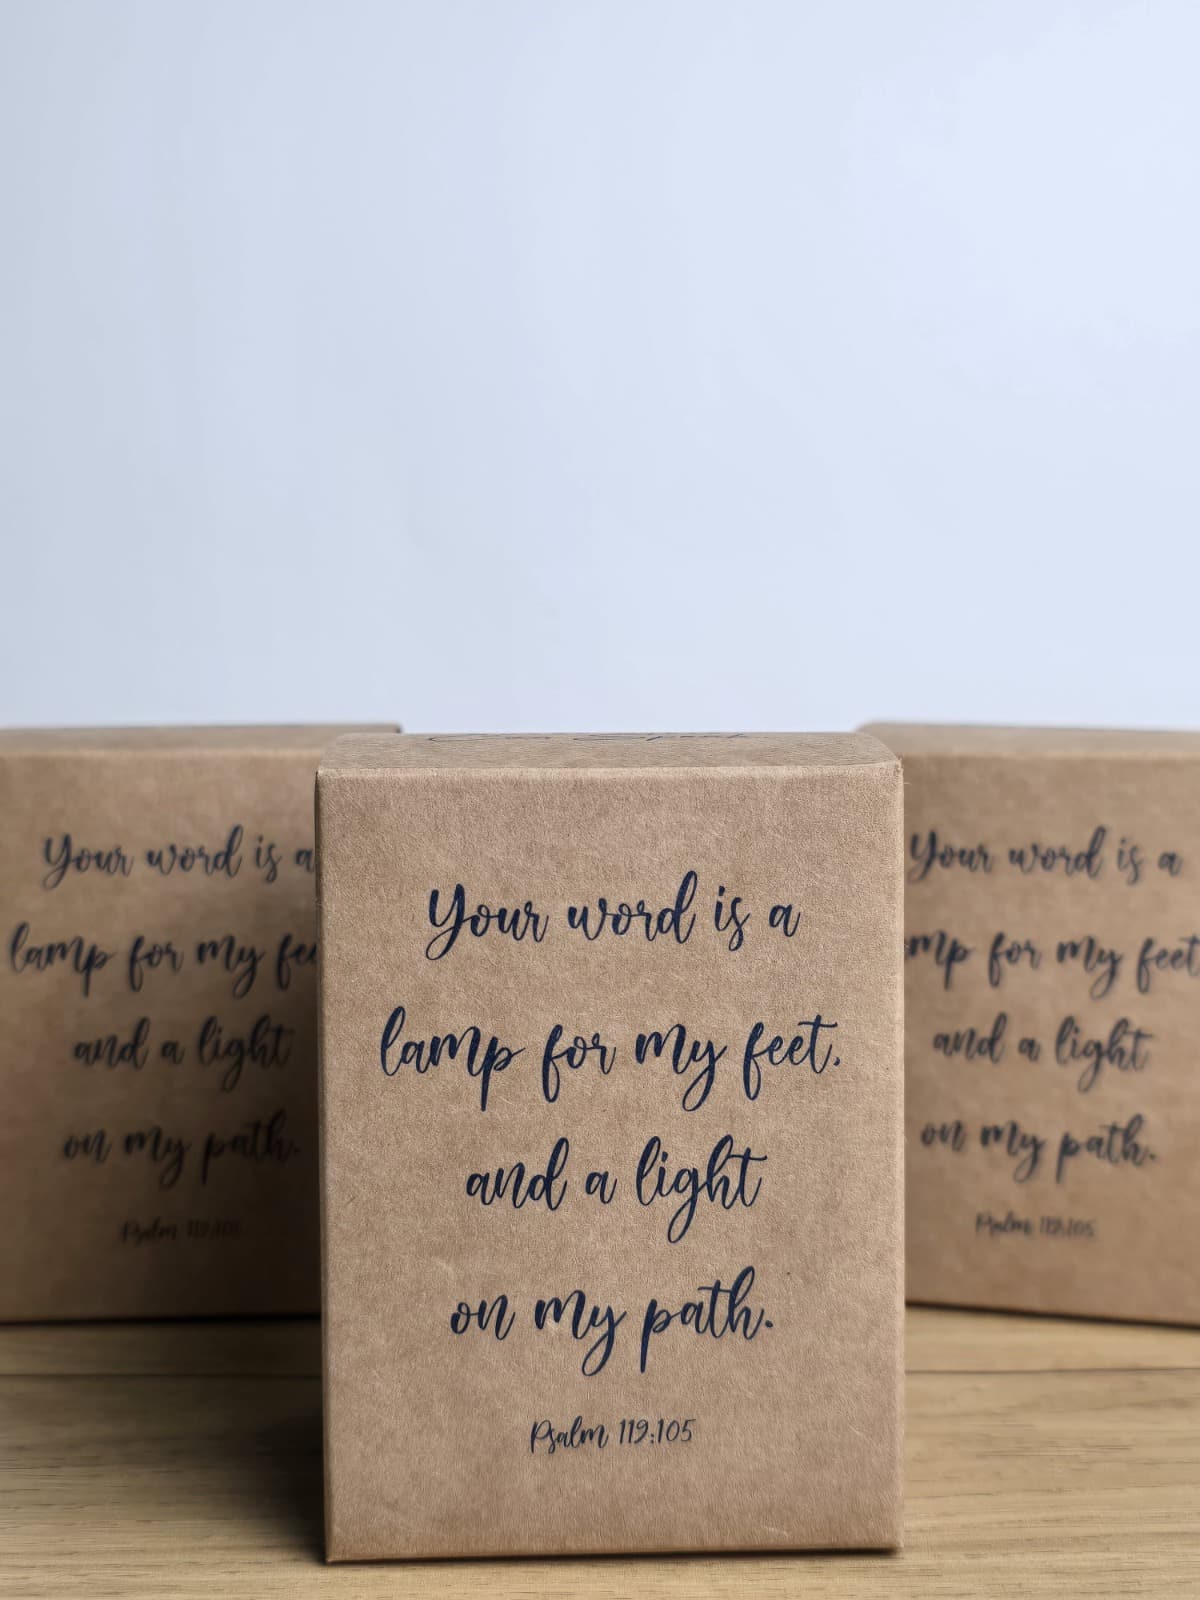 Your word is a
lamp for my feet,
and a light
on my path.
Psalm 119:105
Your word is a
lamp for my
and a light
on my path.
Psalm 119:105
Your word is a
for my feet
and a light
on my path.
Psalm 119:105